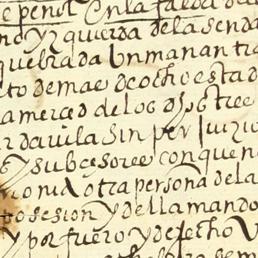 e penol En la falda de
no yzquierda de la senda
quebrada Un manantia
to de mas de ocho estad
a merced de los dhos tre
ar davila Sin perjuizio
s y subcesores con que n
nio ni A otra persona de la
posesion Y della mando
y por fuero y derecho V